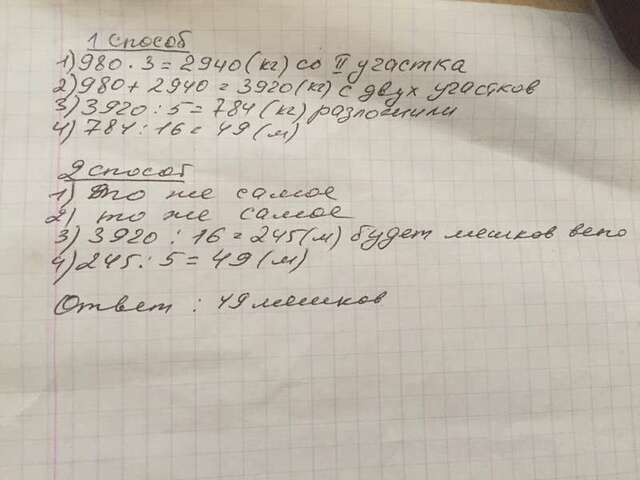 1 способ
1) 980 · 3 = 2940 (кг) со II участка
2) 980 + 2940 = 3920 (кг) с двух участков
3) 3920 : 5 = 784 (кг) разложили
4) 784 : 16 = 49 (м)
2 способ
1) то же самое
2) то же самое
3) 3920 : 16 = 245 (м) будет мешков всего
4) 245 : 5 = 49 (м)
Ответ : 49 мешков